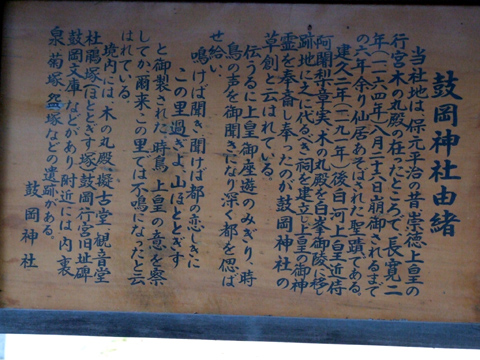 鼓岡神社由緒
当社地は、保元平治の昔崇徳上皇の
行宮木の丸殿の在ったところで、長寛二
年(一一六四年)八月二十六日崩御されるまで
の六年余り仙居あそばされた聖蹟である。
建久二年(一一九一年)後白河上皇近侍
阿闍梨章実、木の丸殿を白峯御陵に移し
跡地に之に代るべき祠を建立し上皇の御神
霊を奉斎し奉ったのが鼓岡神社の
草創と云はれている。
伝うるに上皇御座遊のみぎり、時
鳥の声を御聞きになり深く都を偲ば
せ給い、
鳴けば聞き聞けば都の恋しきに
この里過ぎよ山ほととぎす
と御製された時鳥上皇の意を察
してか爾来この里では不鳴になったと云
はれている。
境内には、木の丸殿、擬古堂、観音堂
杜鵑塚(ほととぎす塚)鼓岡行宮旧址碑
鼓岡文庫などがあり附近には内裏
泉、菊塚、盌塚などの遺跡がある。
鼓岡神社